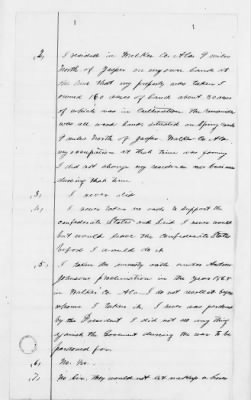 2, I resided in Walker Co. Ala 9 miles
North of Jasper on my own land at
the time that my property was taken I
owned 160 acres of land about 30 acres
of which was in cultivation. The remainder
was all wood land situated on
9 miles North of Jasper. Walker Co. Ala.
my occupation at that time was farming
I did not change my residence nor business
during that time.
3, I never did
4, I never taken no oath to support the
confederate States and said I never would
but would leave the Confederate States
before I would do it.
5, I taken the amnesty oath under Andrew
Johnsons proclamation in the year 1865
in Walker Co. Ala. I do not recollect by
whome I taken it, I never was pardoned
by the President I did not do any thing
against the Goverment during the war to be
pardoned for.
6, No. No.
7, No Sir, They would not